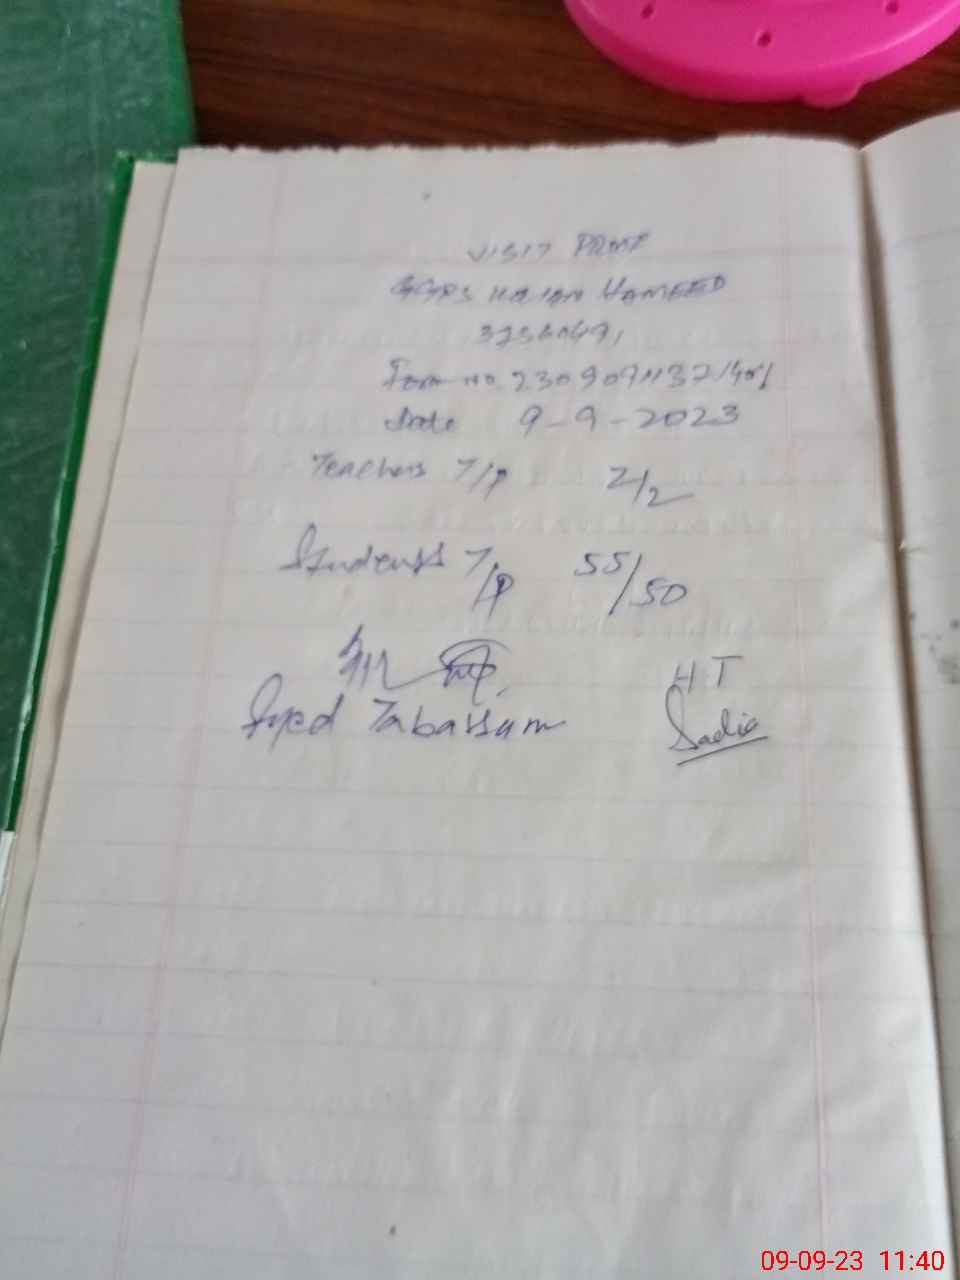 VISIT PROOF
GGPS HAMEED
Form no 230909113
Date 9-9-2023
Teachers T/P 2/2
Students T/P 55/50
Syed Tabassum
HT
Sadia
09-09-23 11:40